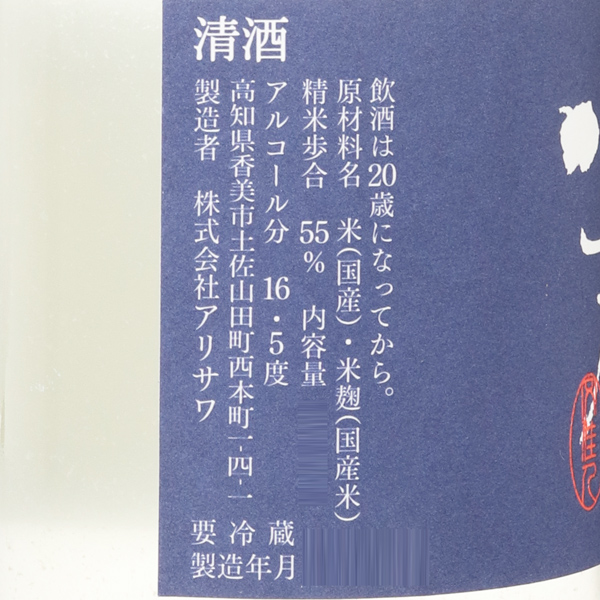 清酒
飲酒は20歳になってから。
原材料名 米(国産)・米麹(国産米)
精米歩合 55% 内容量
アルコール分 16・5度
高知県香美市土佐山田町西本町一-四-一
製造者 株式会社アリサワ
要冷蔵
製造年月